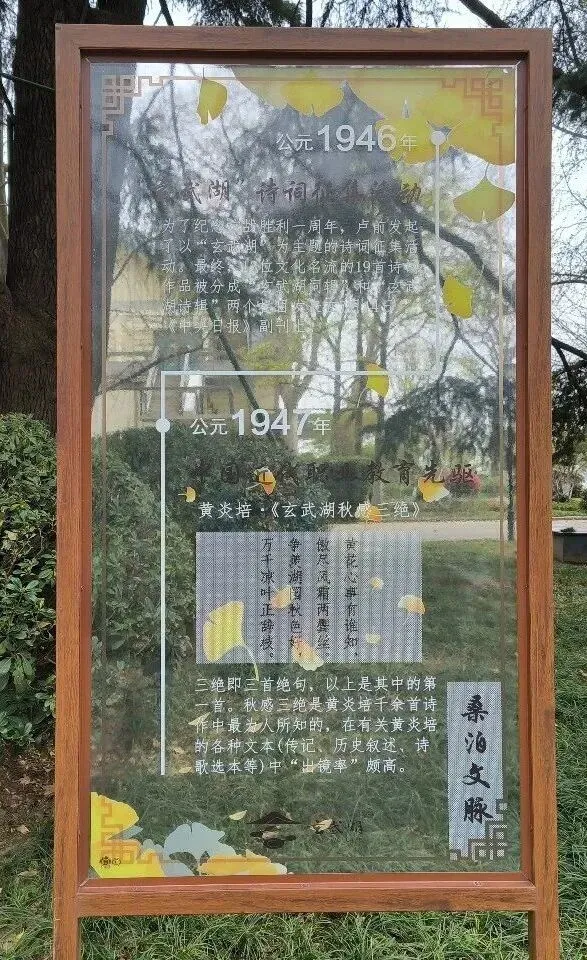 公元1946年
武湖”诗词征集活动
为了纪 战胜利一周年，卢前发起
了以“玄武湖”为主题的诗词征集活
动。最终， 位文化名流的19首诗
作品被分成“玄武湖 辑”和“玄武
湖诗辑”两个
《中央日报》副刊上
公元1947年
中国近代职业教育先驱
黄炎培·《玄武湖秋感三绝》
黄花心事有谁知，
傲尽风霜两鬓丝。
争羡湖园秋色好，
万千凉叶正辞枝。
三绝即三首绝句，以上是其中的第
一首。秋感三绝是黄炎培千余首诗
作中最为人所知的，在有关黄炎培
的各种文本(传记、历史叙述、诗
歌选本等)中“出镜率”颇高。
桑泊文脉
玄武湖